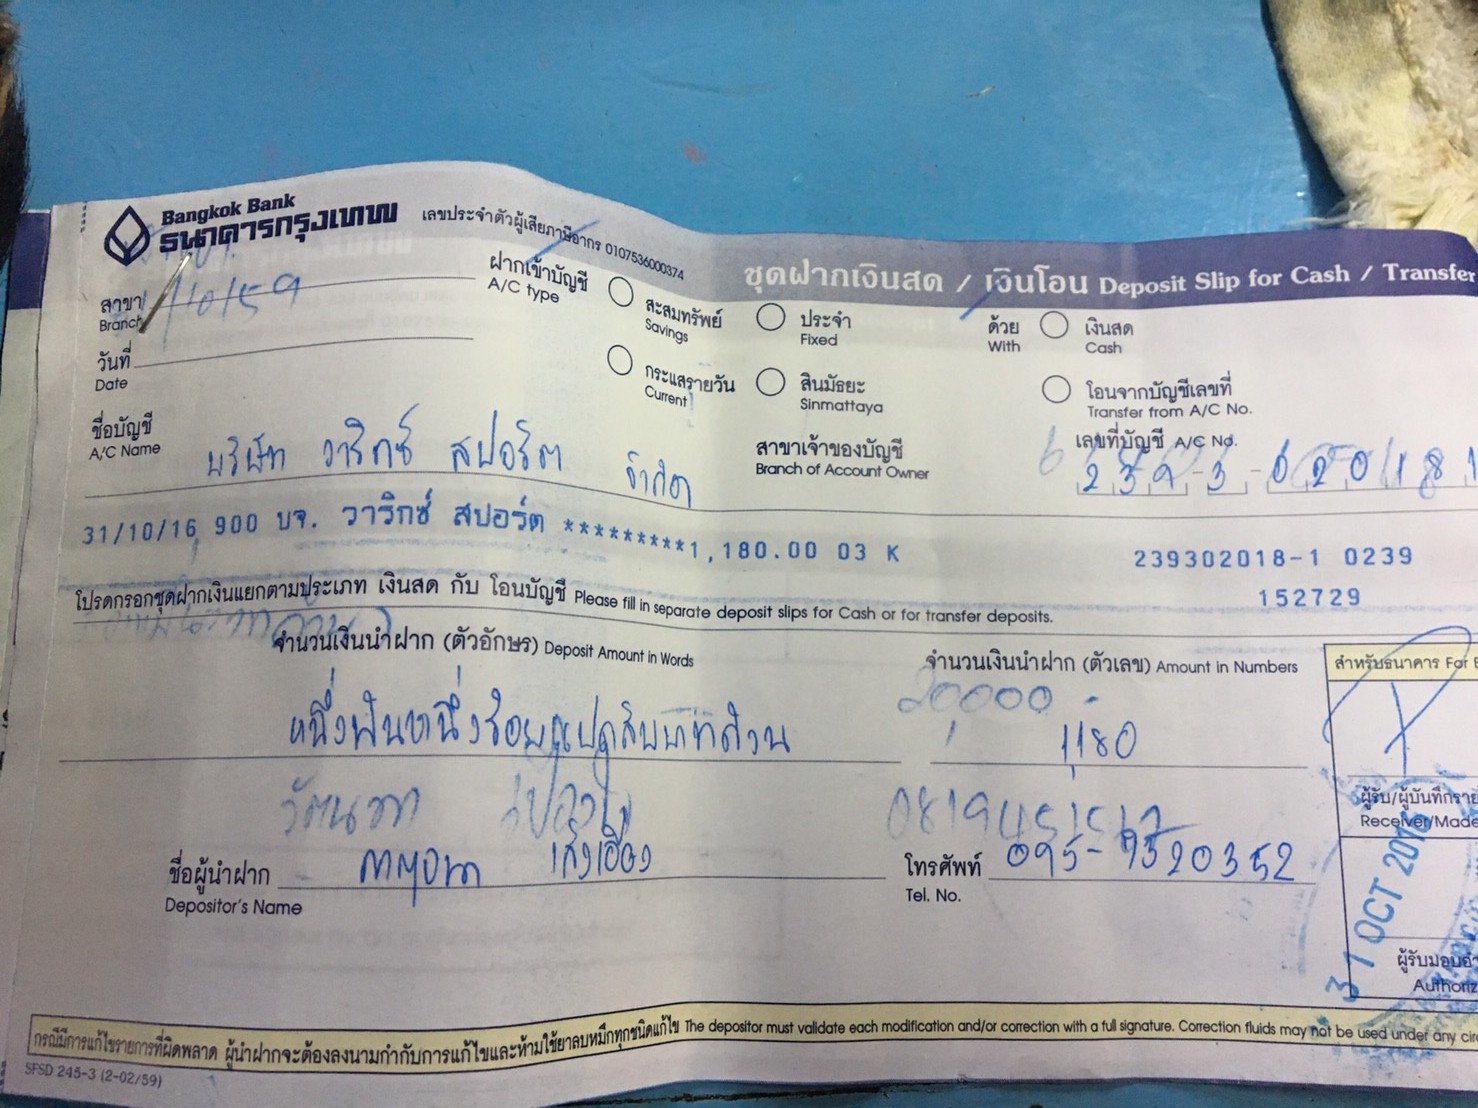 Bangkok Bank
ธนาคารกรุงเทพ
เลขประจำตัวผู้เสียภาษีอากร 0107536000374
ชุดฝากเงินสด / เงินโอน Deposit Slip for Cash / Transfer
สาขา
Branch
/10/59
ฝากเข้าบัญชี
A/C type
สะสมทรัพย์
Savings
ประจำ
Fixed
ด้วย
With
เงินสด
Cash
วันที่
Date
กระแสรายวัน
Current
สินมัธยะ
Sinmattaya
โอนจากบัญชีเลขที่
Transfer from A/C No.
ชื่อบัญชี
A/C Name
บริษัท วาริกซ์ สปอร์ต จำกัด
สาขาเจ้าของบัญชี
Branch of Account Owner
เลขที่บัญชี A/C No.
239-3-020181
31/10/16 900 บจ. วาริกซ์ สปอร์ต *********1,180.00 03 K 239302018-1 0239
152729
โปรดกรอกชุดฝากเงินแยกตามประเภท เงินสด กับ โอนบัญชี Please fill in separate deposit slips for Cash or for transfer deposits.
จำนวนเงินนำฝาก (ตัวอักษร) Deposit Amount in Words
จำนวนเงินนำฝาก (ตัวเลข) Amount in Numbers
สำหรับธนาคาร For
20000.-
หนึ่งพันหนึ่งร้อยแปดสิบบาทถ้วน
1,180
ผู้รับ/ผู้บันทึกราย
Receiver/Made
รัตนา
ชื่อผู้นำฝาก
Depositor's Name
โทรศัพท์ 095-9520352
Tel. No.
31 OCT 2016
ผู้รับมอบอำ
Authoriz
กรณีมีการแก้ไขรายการที่ผิดพลาด ผู้นำฝากจะต้องลงนามกำกับการแก้ไขและห้ามใช้ยาลบหมึกทุกชนิดแก้ไข The depositor must validate each modification and/or correction with a full signature. Correction fluids may not be used under any cir
SFSD 245-3 (2-02/59)